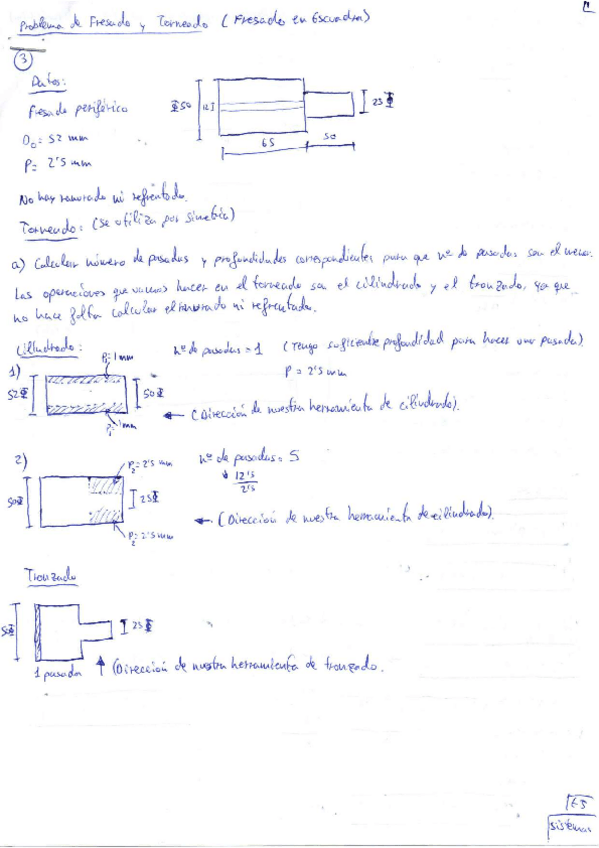 Problema de Fresado y Torneado (Fresado en Escuadra)
3
Datos:
Fresado periférico
D₀ = 52 mm
P = 2'5 mm
Φ50
25 Φ
65
50
No hay ranurado ni refrentado.
Torneado: (Se utiliza por simetría)
a) Calcular número de pasadas y profundidades correspondientes para que nº de pasadas sea el menor.
Las operaciones que vamos hacer en el torneado son el cilindrado y el tronzado, ya que
no hace falta calcular el ranurado ni refrentado.
Cilindrado:
nº de pasadas = 1 (Tengo suficiente profundidad para hacer una pasada)
P = 2'5 mm
1)
P₁=1mm
52Φ
50Φ
P₁=1mm
← (Dirección de nuestra herramienta de cilindrado).
2)
P₂=2'5 mm
nº de pasadas = 5
12'5
2'5
50Φ
25Φ
P₂=2'5 mm
← (Dirección de nuestra herramienta de cilindrado).
Tronzado
50Φ
25Φ
1 pasada
↑ (Dirección de nuestra herramienta de tronzado.
sistemas